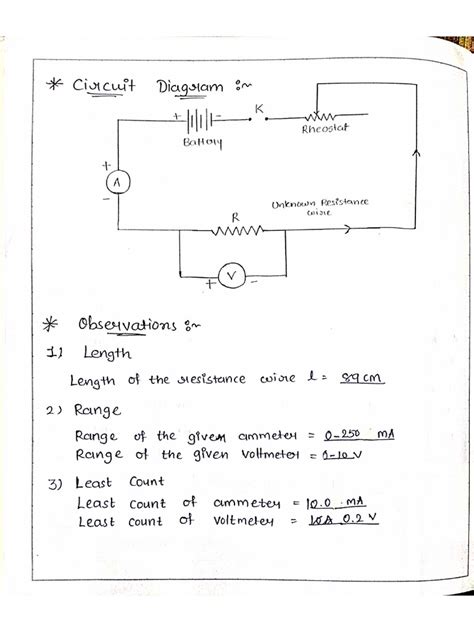 * Circuit Diagram :~
+ -
K
Battery
Rheostat
+
A
-
Unknown Resistance
wire
R
V
+ -
* Observations :~
1) Length
Length of the resistance wire l = 89 cm
2) Range
Range of the given ammeter = 0-250 mA
Range of the given voltmeter = 0-10 V
3) Least Count
Least count of ammeter = 10.0 mA
Least count of voltmeter = 0.2 V